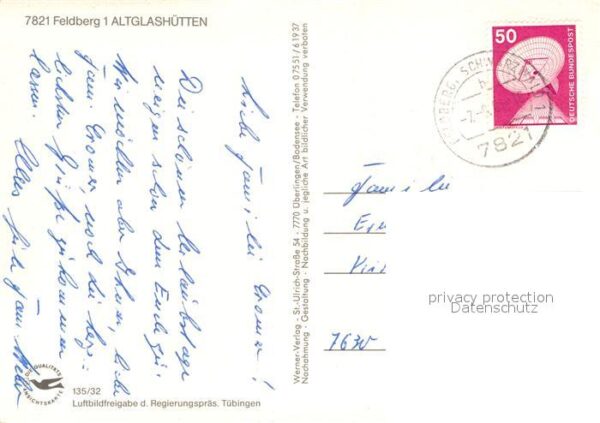 7821 Feldberg 1 ALTGLASHÜTTEN
Liebe Familie Cromer!
Die schönen Urlaubstage
neigen schon dem Ende zu.
Wir möchten aber Ihnen, liebe
Fam. Cromer noch die herz-
lichsten Grüße zukommen
lassen. Alles
Fam.
QUALITÄTS
ANSICHTSKARTE
135/32
Luftbildfreigabe d. Regierungspräs. Tübingen
Werner-Verlag - St.-Ulrich-Straße 54 - 7770 Überlingen/Bodensee - Telefon 07551/61937
Nachahmung, Gestaltung - Nachbildung u. jegliche Art bildlicher Verwendung verboten
50
DEUTSCHE BUNDESPOST
FELDBERG, SCHWARZW 1
7821
Familie
7630
privacy protection
Datenschutz